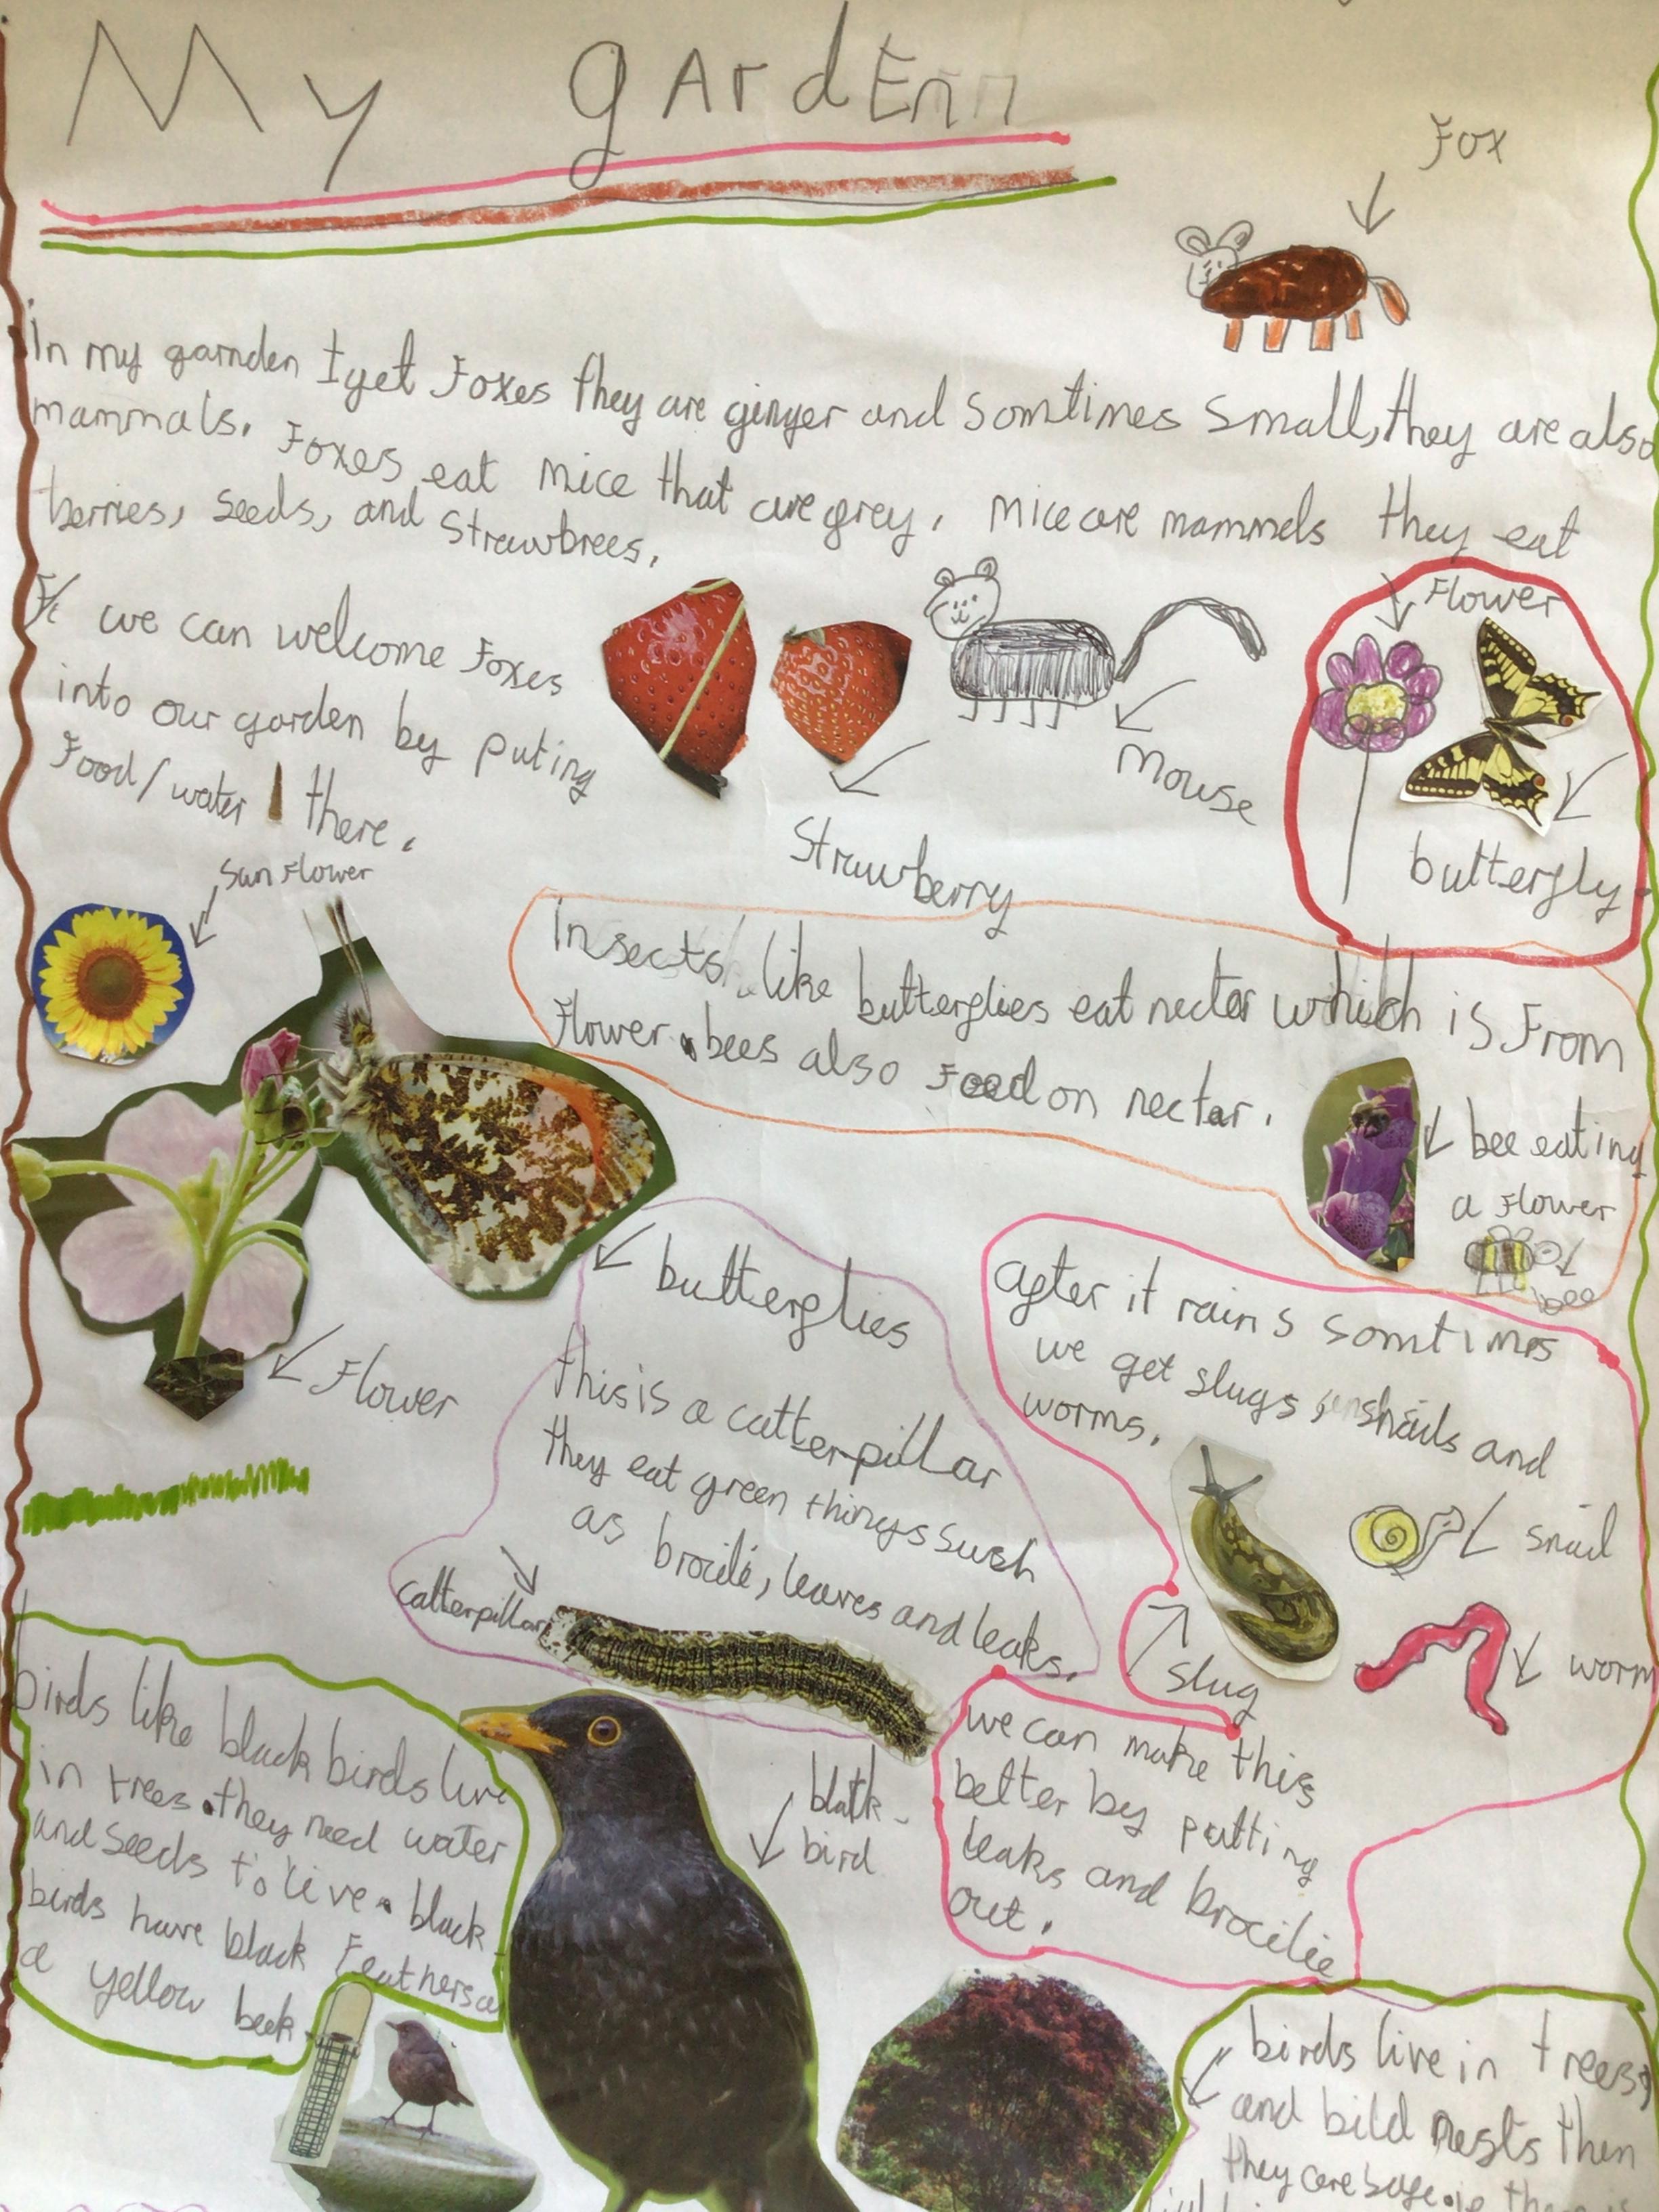 My gardEn
Fox
In my garnden I get Foxes they are ginger and Somtimes Small, they are also
mammals. Foxes eat mice that are grey. Mice are mammels they eat
berries, Seeds, and Strawbrees.
we can welcome Foxes
into our garden by puting
Food/water there.
Flower
Mouse
Strawberry
butterfly
Sun Flower
Insects like butterflies eat nectar which is From
Flower. bees also Feed on nectar.
bee eating
a Flower
bee
butterflies
Flower
this is a catterpillar
they eat green things Sush
as brocili, leaves and leaks.
Catterpillar
after it rains Somtimes
we get slugs, snails and
worms.
snail
worm
Slug
we can make this
better by putting
leaks and brocilie
out.
birds like black birds live
in trees. they need water
and Seeds to live. black-
birds have black Feathers a
a yellow beek.
black-
bird
birds live in trees,
and bild nests then
they are safe.